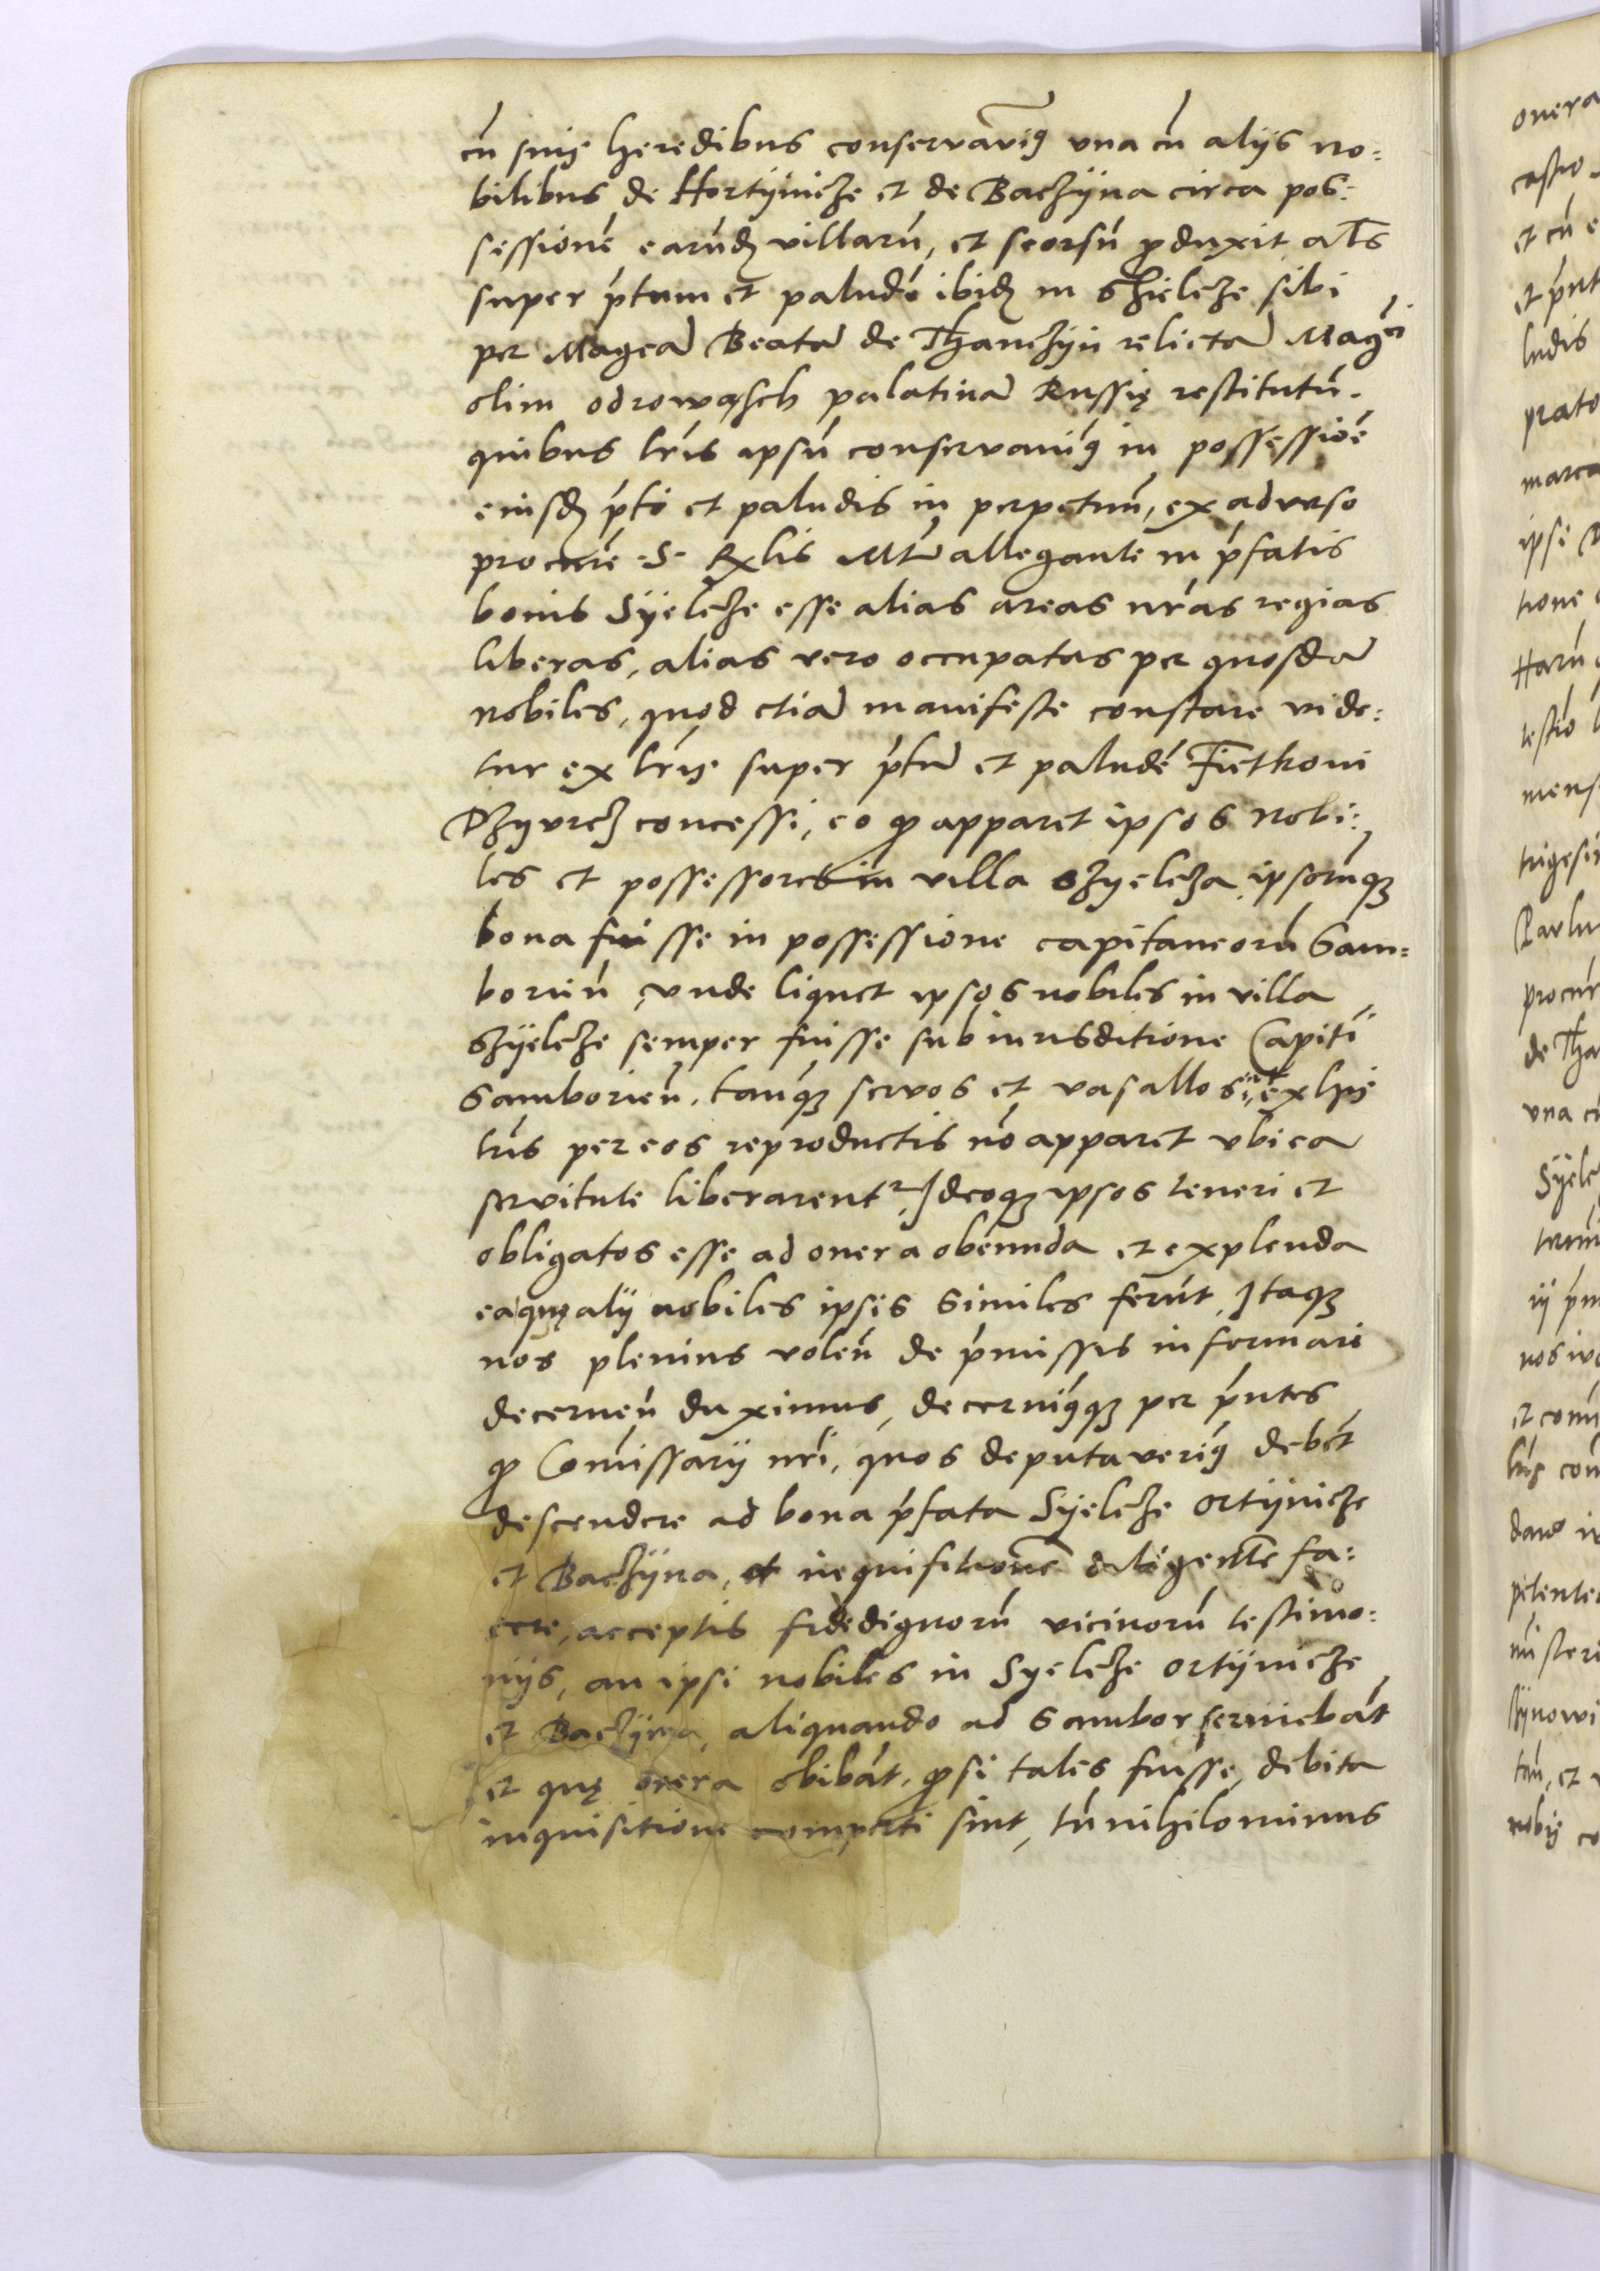 cū suis heredibus conservavimꝰ una cū aliis no꞊
bilibus de Hortÿnicze et de Baczÿna circa pos꞊
sessionē earūdē villarū, et seorsū ꝓduxit als
super p̄tum et paludē ibidē in Szielcze sibi
per Magcā Beatā de Thanczÿn relictā Magci
olim odrowąsch palatinā Russię restitutū.
quibus lr̄is ipsū conservavimꝰ in possessiōe
eiusdē p̄ti et paludis in perpetuū, ex adverso
procur̄e S. Rglis Mtis allegante in p̄fatis
bonis Sÿelcze esse alias areas nr̄as regias
liberas, alias vero occupatas per quosdā
nobiles, quod etiā manifeste constare vide꞊
tur ex lr̄is super p̄tū et paludē Fiethkoni
Dzyurcz concessi, eo ꝙ apparet ipsos nobi꞊
les et possessores in villa Szyelcza ipsorūq꜄
bona fuisse in possessione capitaneorū Sam꞊
borien̄, unde liquet ipsos nobiles in villa
Szÿelcze semper fuisse sub iurisditione Capitī
Samborien̄. tanq̄ꝫ servos et vasallos, et ex
lr̄is per eos reproductis nō apparet ubi ea
servitute liberarentr, Ideoqꝫ ipsos teneri et
obligatos esse ad onera obeunda et explenda
ea quę alii nobiles ipsis similes ferūt, Itaqꝫ
nos plenius volen̄ de p̄missis informari
decernen̄ duximus, decernimꝰqꝫ per p̄ntes
ꝙ Com̄issarii nr̄i, quos deputaverimꝰ debēt
descendere ad bona p̄fata Sÿelcze ortÿnicze
et Baczÿna, et inquisitionē diligentē fa꞊
cere, acceptis fidedignorū vicinorū testimo꞊
niis, an ipsi nobiles in Syelcze ortÿnicze
et Baczÿna aliquando ad Sambor serviebāt
et quę onera obibāt, ꝙ si tales fuisse debita
inquisitione comperti sint, tū nihilominus